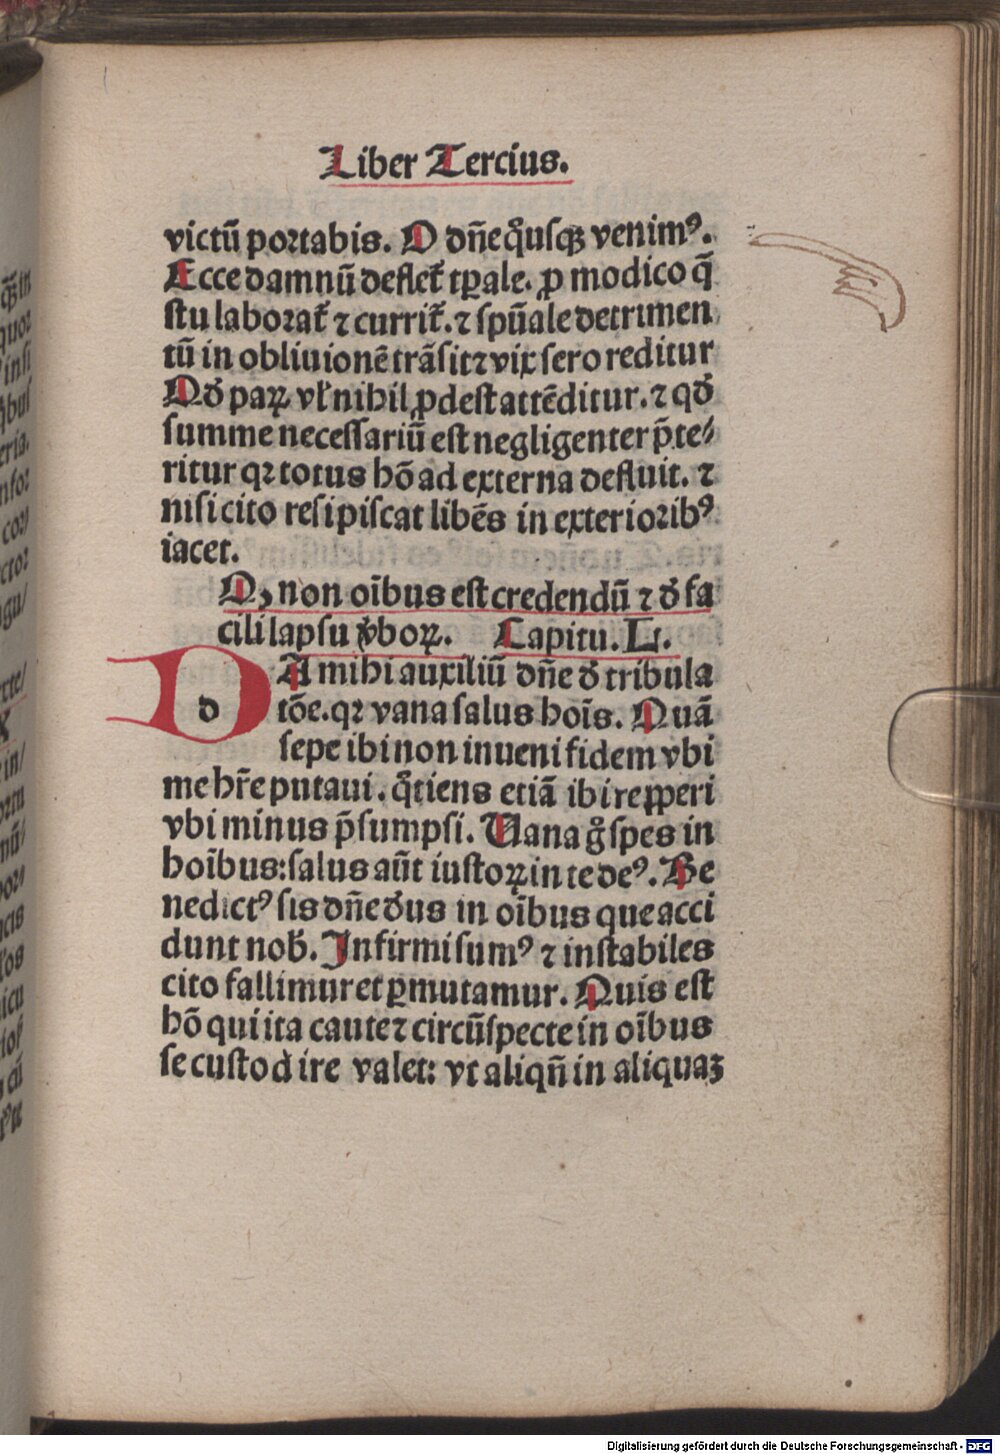 Liber Tercius.
victū portabis. O dn̄e q̊usqꝫ venimꝰ.
Ecce damnū deflet᷑ tꝑale. ꝓ modico q̄
stu laborat᷑ ⁊ currit᷑. ⁊ sp̄uale detrimen
tū in obliuionē trāsit ⁊ vix sero reditur
Qđ paꝝ vl̓ nihil ꝓdest attēditur. ⁊ qđ
summe necessariū est negligenter p̄te⸗
ritur qꝛ totus hō ad externa defluit. ⁊
nisi cito resipiscat libēs in exterioribꝰ
iacet.
Qꝫ non oībus est credendū ⁊ đ fa
cili lapsu v̓boꝝ. Capitu. L.
d
DA mihi auxiliū dn̄e đ tribula
tōe. qꝛ vana salus hoīs. Quā
sepe ibi non inueni fidem vbi
me hr̄e putaui. q̊tiens etiā ibi repꝑeri
vbi minus p̄sumpsi. Uana g̊ spes in
hoībus: salus aūt iustoꝝ in te deꝰ. Be
nedictꝰ sis dn̄e đus in oībus que acci
dunt nob̄. Infirmi sumꝰ ⁊ instabiles
cito fallimur et ꝑmutamur. Quis est
hō qui ita caute ⁊ circūspecte in oībus
se custodire valet: vt aliqn̄ in aliquaꝫ
Digitalisierung gefördert durch die Deutsche Forschungsgemeinschaft - DFG